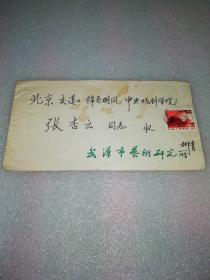 北京交道口棉花胡同，中央戏剧学院
张杏云 同志 收
柳青
武汉市艺术研究所